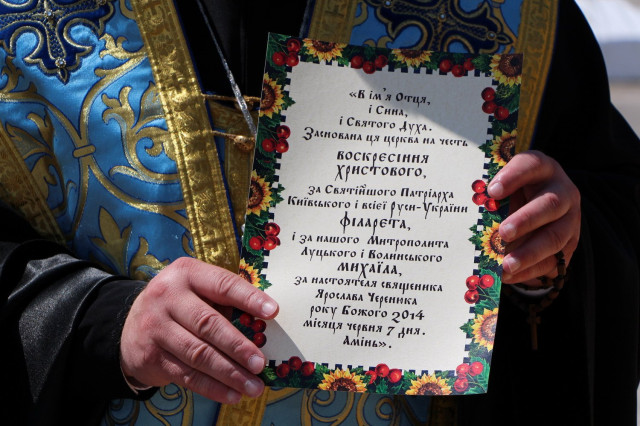 «В ім'я Отця,
і Сина,
і Святого Духа.
Заснована ця церква на честь
ВОСКРЕСІННЯ
ХРИСТОВОГО,
за Святійшого Патріарха
Київського і всієї Руси-України
ФІЛАРЕТА,
і за нашого Митрополита
Луцького і Волинського
МИХАЇЛА,
за настоятеля священика
Ярослава Черенюка
року Божого 2014
місяця червня 7 дня.
Амінь».